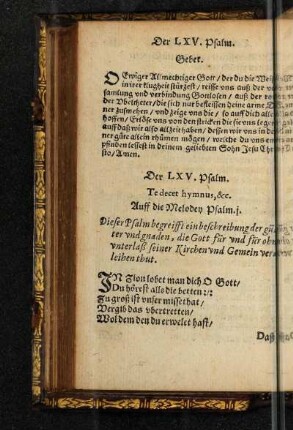 Der LXV. Psalm.
Gebet.
O Ewiger Allmechtiger Gott / der du die
in irer klugheit stürzest / reisse vns auß der
samlung vnd verbindung Gottlosen / auß der
der Vbeltheter / die sich nur befleissen deine arme
ner zusuchen / vnd zeige vns die / so auff dich alle
hoffen / Erlöse vns von den stricken die sie vns legen
auff daß wir also allzeit haben / dessen wir vns in
ter güte allein rhümen mögen / welche du vns
pfinden lessest in deinem geliebten Sohn Jesu
sto / Amen.
Der LXV. Psalm.
Te decet hymnus, &c.
Auff die Melodey Psalm.j.
Dieser Psalm begreifft ein beschreibung der
ter vnd gnaden, die Gott für vnd für
vnterlaß seiner Kirchen vnd Gemein
leihen thut.
IN Zion lobet man dich O Gott /
Du hörest all die betten
Zu groß ist vnser missethat /
Vergib das vbertretten /
Wol dem den du erwelet hast /